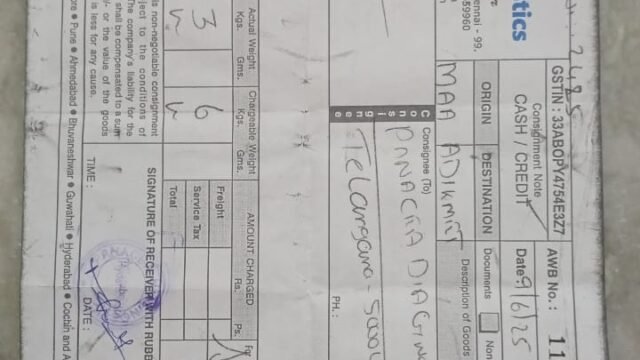 tics
ennai - 99.
59960
GSTIN : 33ABOPY4754E3Z7
Consignment Note
CASH / CREDIT
AWB No. : 11
Date 9/6/25
ORIGIN
DESTINATION
MAA
Documents
Non
Description of Goods
Consignee (To)
Consignee
Telangana - 500
PH. :
Actual Weight
Kgs.
Gms.
Chargeable Weight
Kgs.
Gms.
AMOUNT CHARGED
Rs.
Ps.
3
6
Freight
Service Tax
Total
is non-negotiable consignment
ject to the conditions of
The company's liability for the
shall be compensated to a sum
/- or the value of the goods
is less for any cause.
SIGNATURE OF RECEIVER WITH RUBB
TIME :
DATE :
ore ● Pune ● Ahmedabad ● Bhuvaneshwar ● Guwahati ● Hyderabad ● Cochin and A